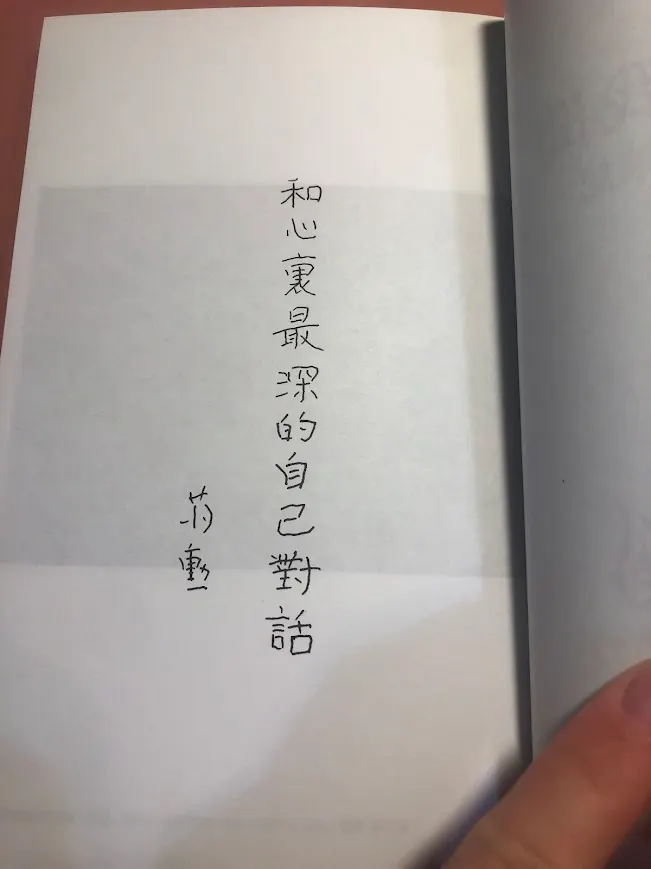 和心裏最深的自己對話
蔣勳